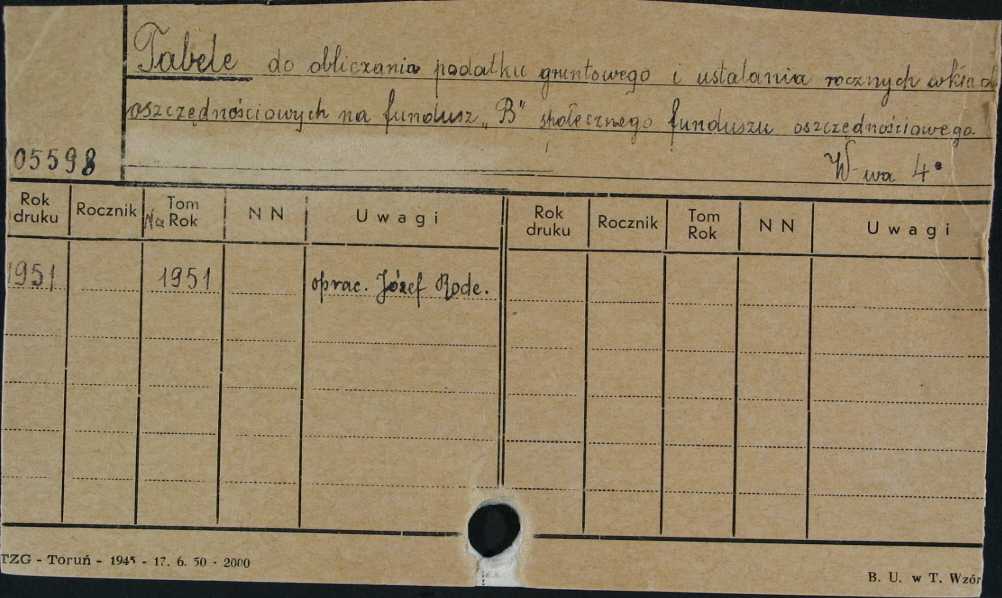 Tabele do obliczania podatku gruntowego i ustalania rocznych wkład
oszczędnościowych na fundusz „B" społecznego funduszu oszczędnościowego.
05598
W-wa 4°
Rok druku Rocznik Na Tom Rok N N Uwagi Rok druku Rocznik Tom Rok N N Uwagi
1951 1951 oprac. Józef Rode.
TZG - Toruń - 1945 - 17. 6. 50 - 2000
B. U. w T. Wzór